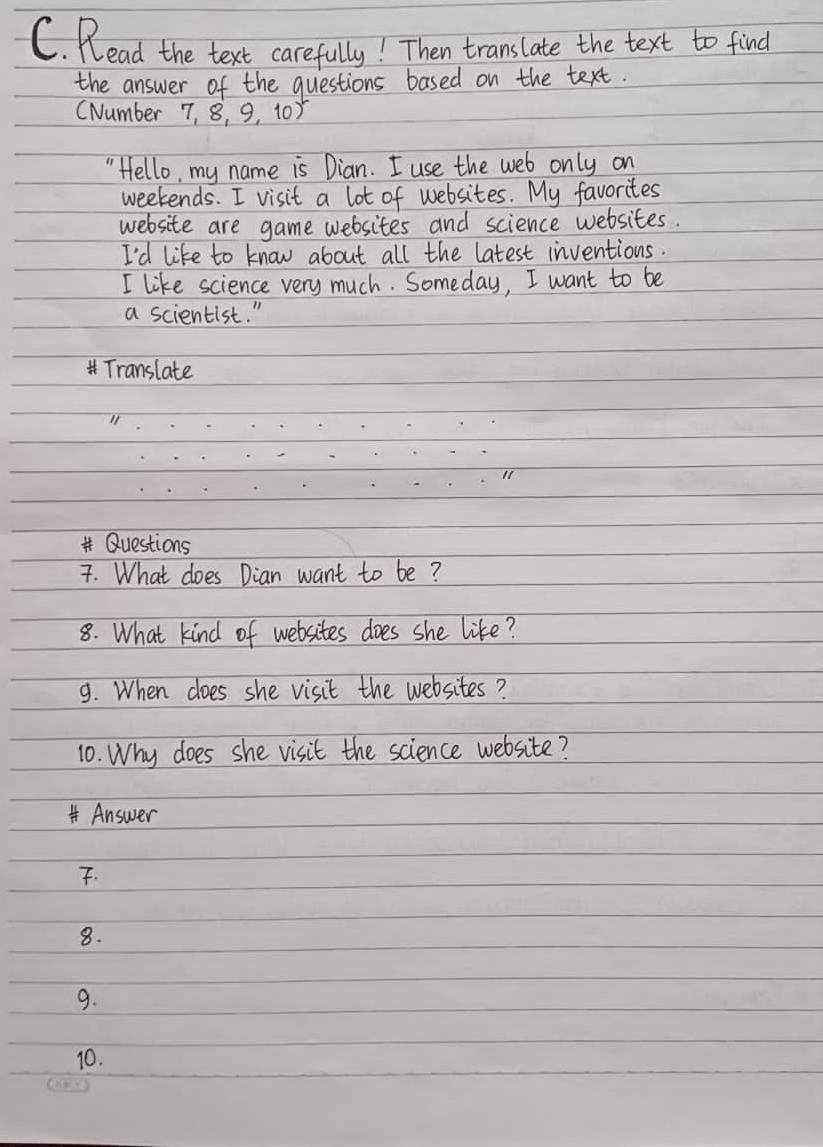 C. Read the text carefully! Then translate the text to find
the answer of the questions based on the text.
(Number 7, 8, 9, 10)
"Hello, my name is Dian. I use the web only on
weekends. I visit a lot of websites. My favorites
website are game websites and science websites.
I'd like to know about all the latest inventions.
I like science very much. Someday, I want to be
a scientist."
# Translate
" . . . . . . . . .
. . . . . . . . . .
. . . . . . . . . "
# Questions
7. What does Dian want to be?
8. What kind of websites does she like?
9. When does she visit the websites?
10. Why does she visit the science website?
# Answer
7.
8.
9.
10.